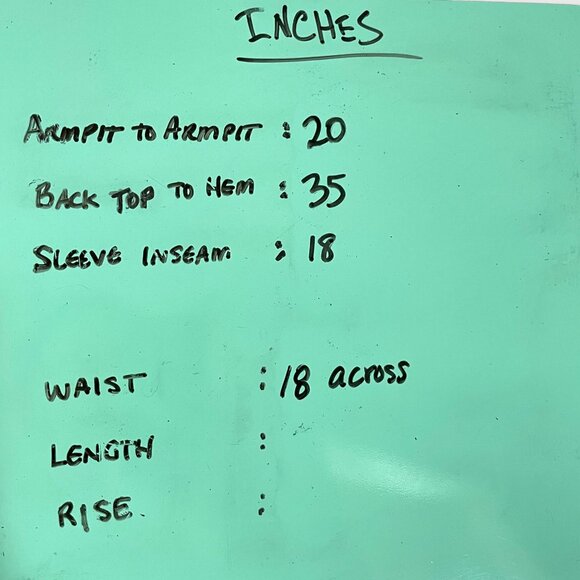 INCHES
ARMPIT TO ARMPIT : 20
BACK TOP TO HEM : 35
SLEEVE INSEAM : 18
WAIST : 18 across
LENGTH :
RISE :